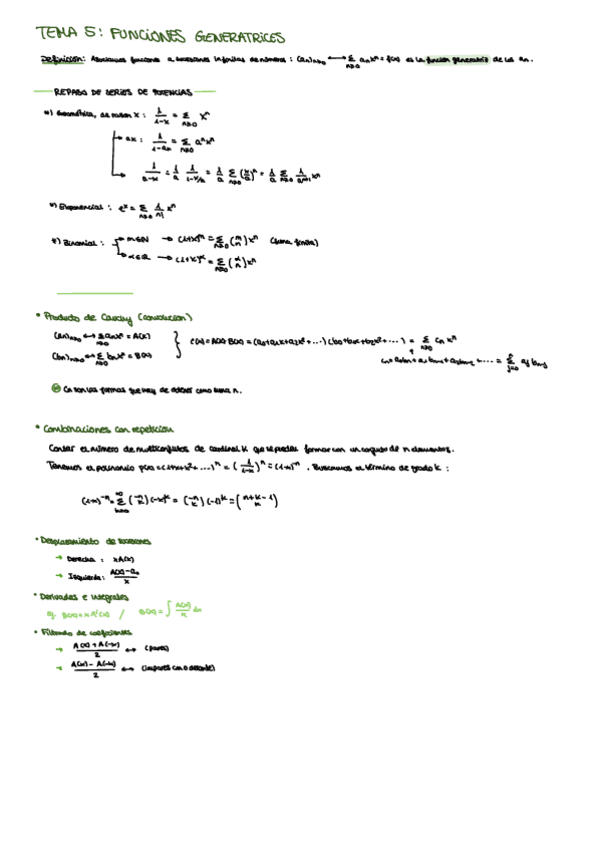 TEMA 5: FUNCIONES GENERATRICES
Definición: Asociamos funciones a sucesiones infinitas de números: (an)n≥0 ⟷ Σn≥0 anxⁿ = f(x) es la función generatriz de los an.
REPASO DE SERIES DE POTENCIAS
*) Geométrica, de razón x: 1/(1-x) = Σn≥0 xⁿ
→ ax: 1/(1-ax) = Σn≥0 aⁿxⁿ
→ 1/(a-x) = 1/a · 1/(1-x/a) = 1/a Σn≥0 (x/a)ⁿ = 1/a Σn≥0 1/aⁿ xⁿ
*) Exponencial: eˣ = Σn≥0 1/n! xⁿ
*) Binomial: m∈N → (1+x)ᵐ = Σn≥0 (m n) xⁿ (suma finita)
α∈R → (1+x)^α = Σn≥0 (α n) xⁿ
• Producto de Cauchy (convolución)
(an)n≥0 ⟷ Σn≥0 anxⁿ = A(x)
(bn)n≥0 ⟷ Σn≥0 bnxⁿ = B(x)
C(x) = A(x)·B(x) = (a0+a1x+a2x²+...)(b0+b1x+b2x²+...) = Σn≥0 cn xⁿ
cn = a0bn + a1bn-1 + a2bn-2 + ... = Σj=0 aj bn-j
Cn son las formas que hay de obtener como suma n.
• Combinaciones con repetición
Contar el número de multiconjuntos de cardinal k que se pueden formar con un conjunto de n elementos.
Tenemos el polinomio p(x) = (1+x+x²+...)ⁿ = (1/(1-x))ⁿ = (1-x)⁻ⁿ. Buscamos el término de grado k:
(1-x)⁻ⁿ = Σk≥0 (-n k)(-x)ᵏ = (-n k)(-1)ᵏ = (n+k-1 k)
• Desplazamiento de sucesiones
→ Derecha: xA(x)
→ Izquierda: (A(x)-a0)/x
• Derivadas e integrales
Ej. B(x) = x A'(x) / B(x) = ∫ A(x)/x dx
• Filtrado de coeficientes
→ (A(x)+A(-x))/2 ⟷ (pares)
→ (A(x)-A(-x))/2 ⟷ (impares con 0 delante)